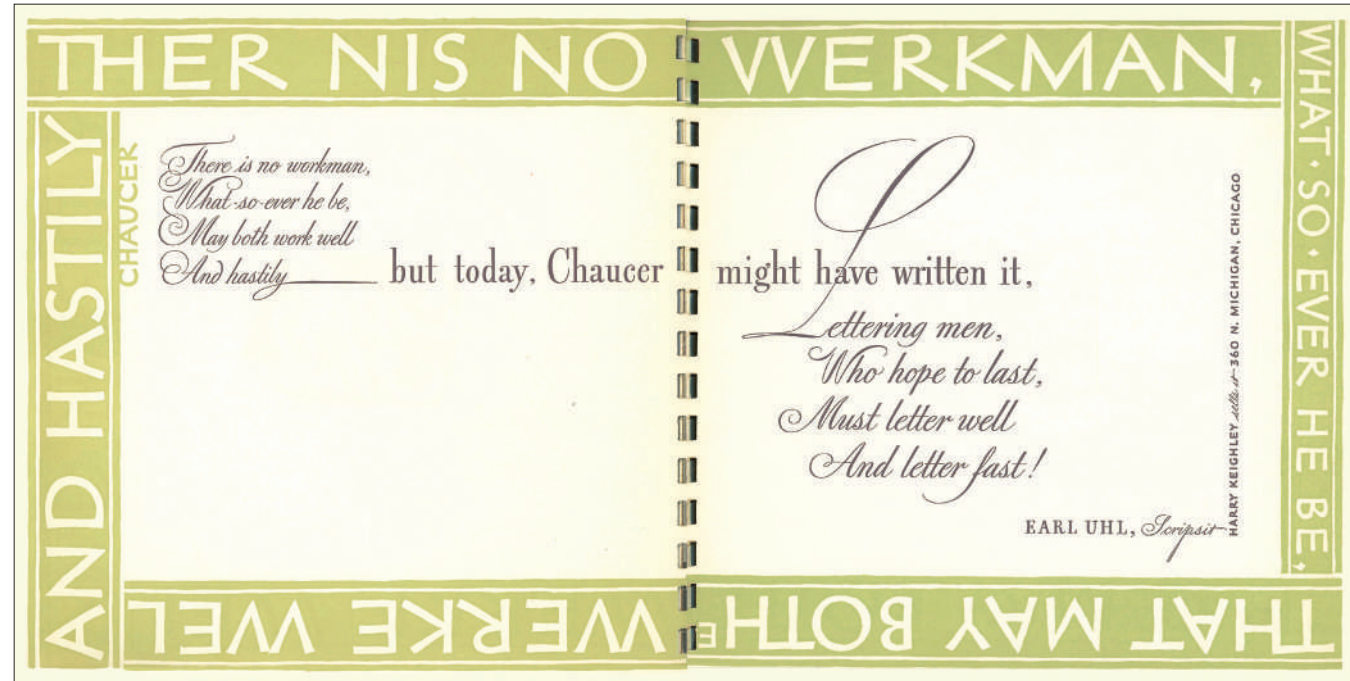 THER NIS NO WERKMAN,
WHAT · SO · EVER HE BE,
THAT MAY BOTHE
WERKE WEL
AND HASTILY
CHAUCER
There is no workman,
What-so-ever he be,
May both work well
And hastily but today, Chaucer might have written it,
Lettering men,
Who hope to last,
Must letter well
And letter fast!
EARL UHL, Scripsit
HARRY KEIGHLEY sells it–360 N. MICHIGAN, CHICAGO